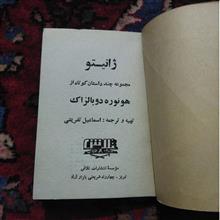 ژانیتو
مجموعه چند داستان کوتاه از
هونوره دو بالزاک
تهیه و ترجمه : اسماعیل تفریشی
مؤسسهٔ انتشارات تلاش
تبریز - چهارراه شریعتی پاساژ کریمی